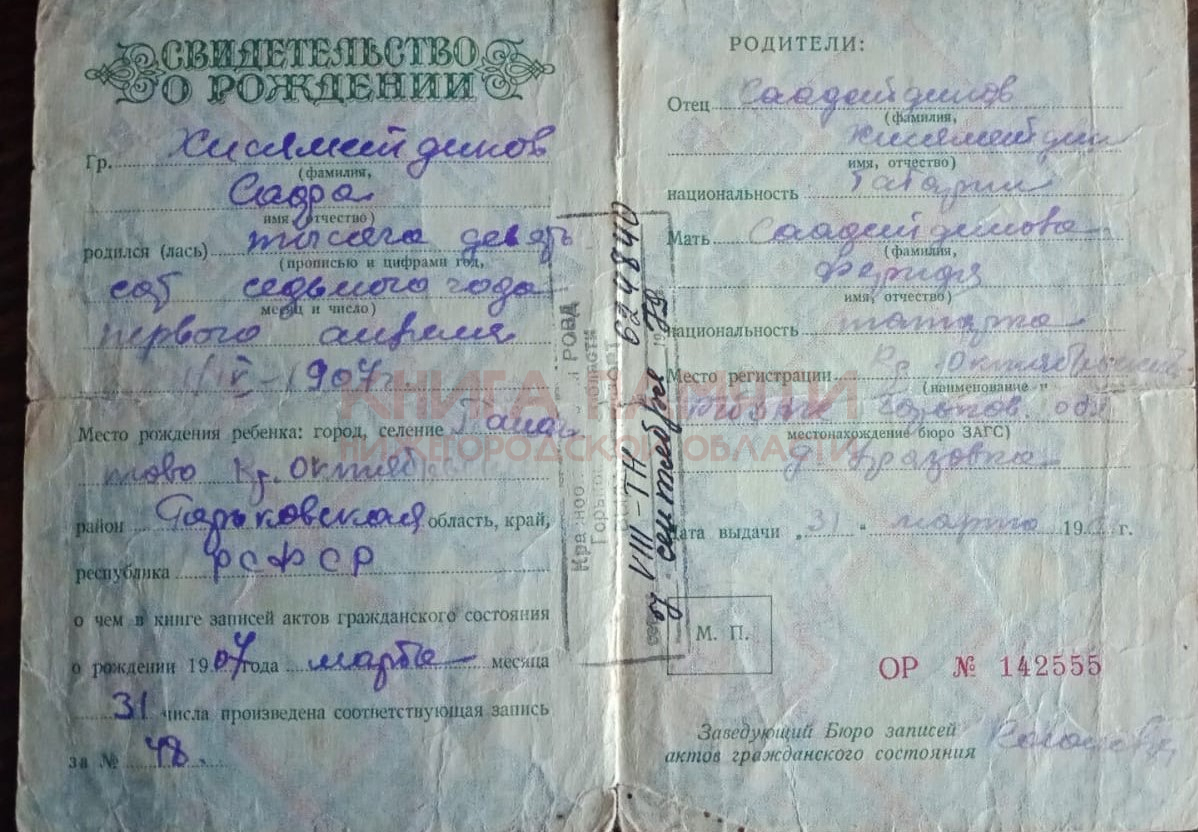 СВИДЕТЕЛЬСТВО
О РОЖДЕНИИ
Гр. Хисяметдинов
(фамилия,
Садра
имя отчество)
родился (лась) тысяча девять
(прописью и цифрами год,
сот седьмого года
месяц и число)
первого апреля
1/IV-1907г
Место рождения ребенка: город, селение
Кр. Октябрь
район Горьковская область, край,
республика РСФСР
о чем в книге записей актов гражданского состояния
о рождении 1907 года марта месяца
31 числа произведена соответствующая запись
за № 48.
РОДИТЕЛИ:
Отец Саадетдинов
(фамилия,
Хисяметдин
имя, отчество)
национальность татарин
Мать Саадетдинова
(фамилия,
Феридя
имя, отчество)
национальность татарка
Место регистрации Кр. Октябрьский
(наименование и
Горьков. обл
местонахождение бюро ЗАГС)
д. Уразовка
Дата выдачи „31" марта 19 г.
М. П.
ОР № 142555
Заведующий Бюро записей
актов гражданского состояния
РОВД
VIII-ТН 624840
сентября 1979
КНИГА ПАМЯТИ
НИЖЕГОРОДСКОЙ ОБЛАСТИ